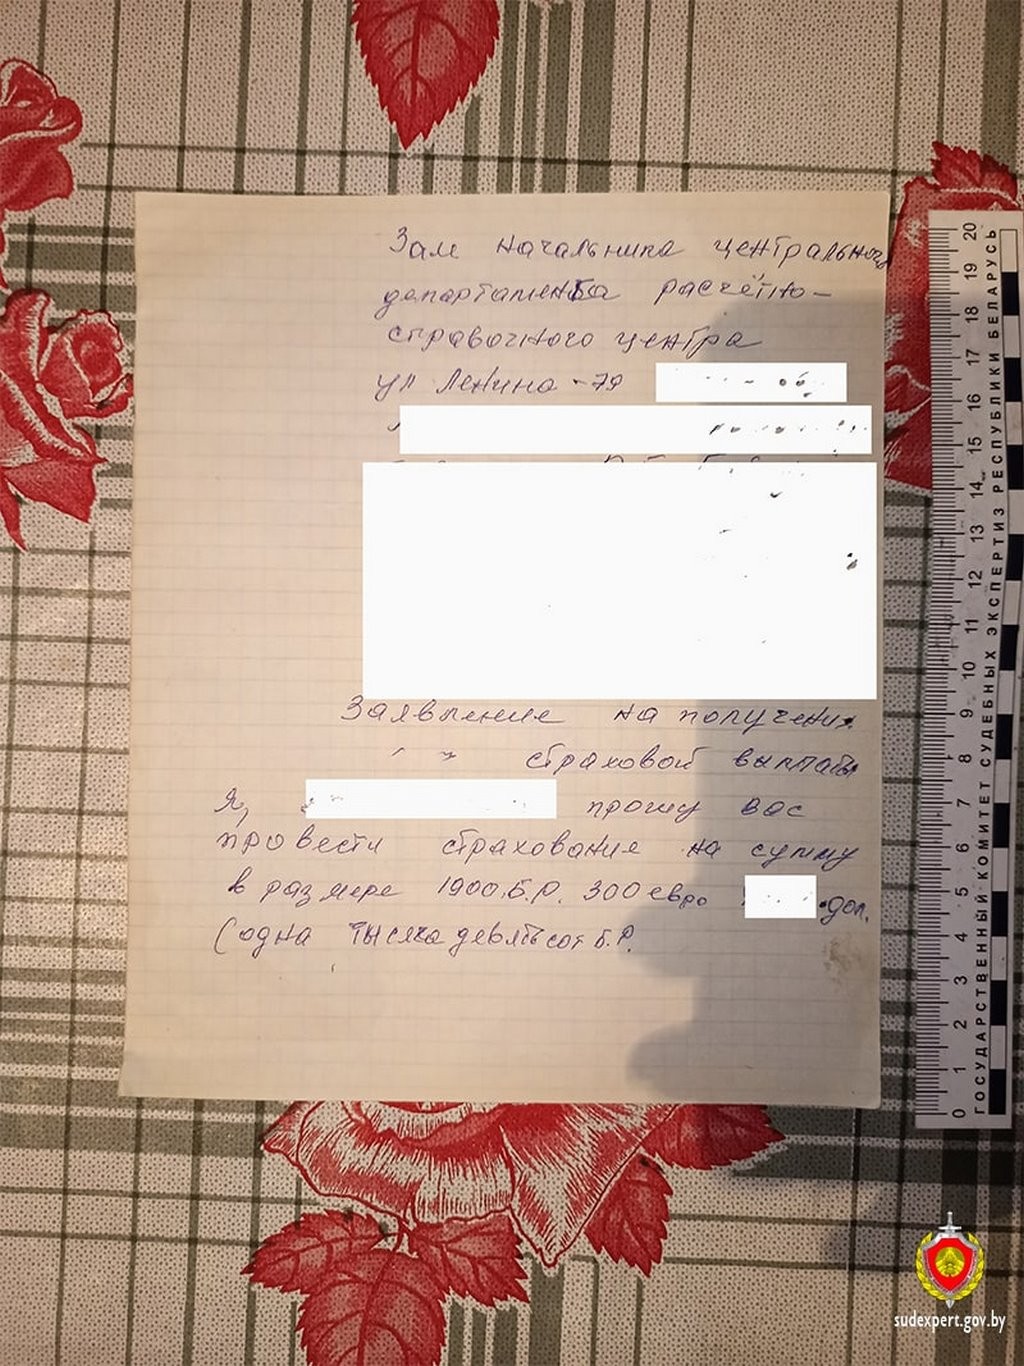 Зам начальника центрального
департамента расчётно-
справочного центра
ул Ленина - 79
Заявление на получение
страховой выплаты
Я, прошу вас
провести страхование на сумму
в размере 1900.Б.Р. 300 евро дол.
(одна тысяча девятьсот Б.Р.
0 1 2 3 4 5 6 7 8 9 10 11 12 13 14 15 16 17 18 19 20
ГОСУДАРСТВЕННЫЙ КОМИТЕТ СУДЕБНЫХ ЭКСПЕРТИЗ РЕСПУБЛИКИ БЕЛАРУСЬ
sudexpert.gov.by